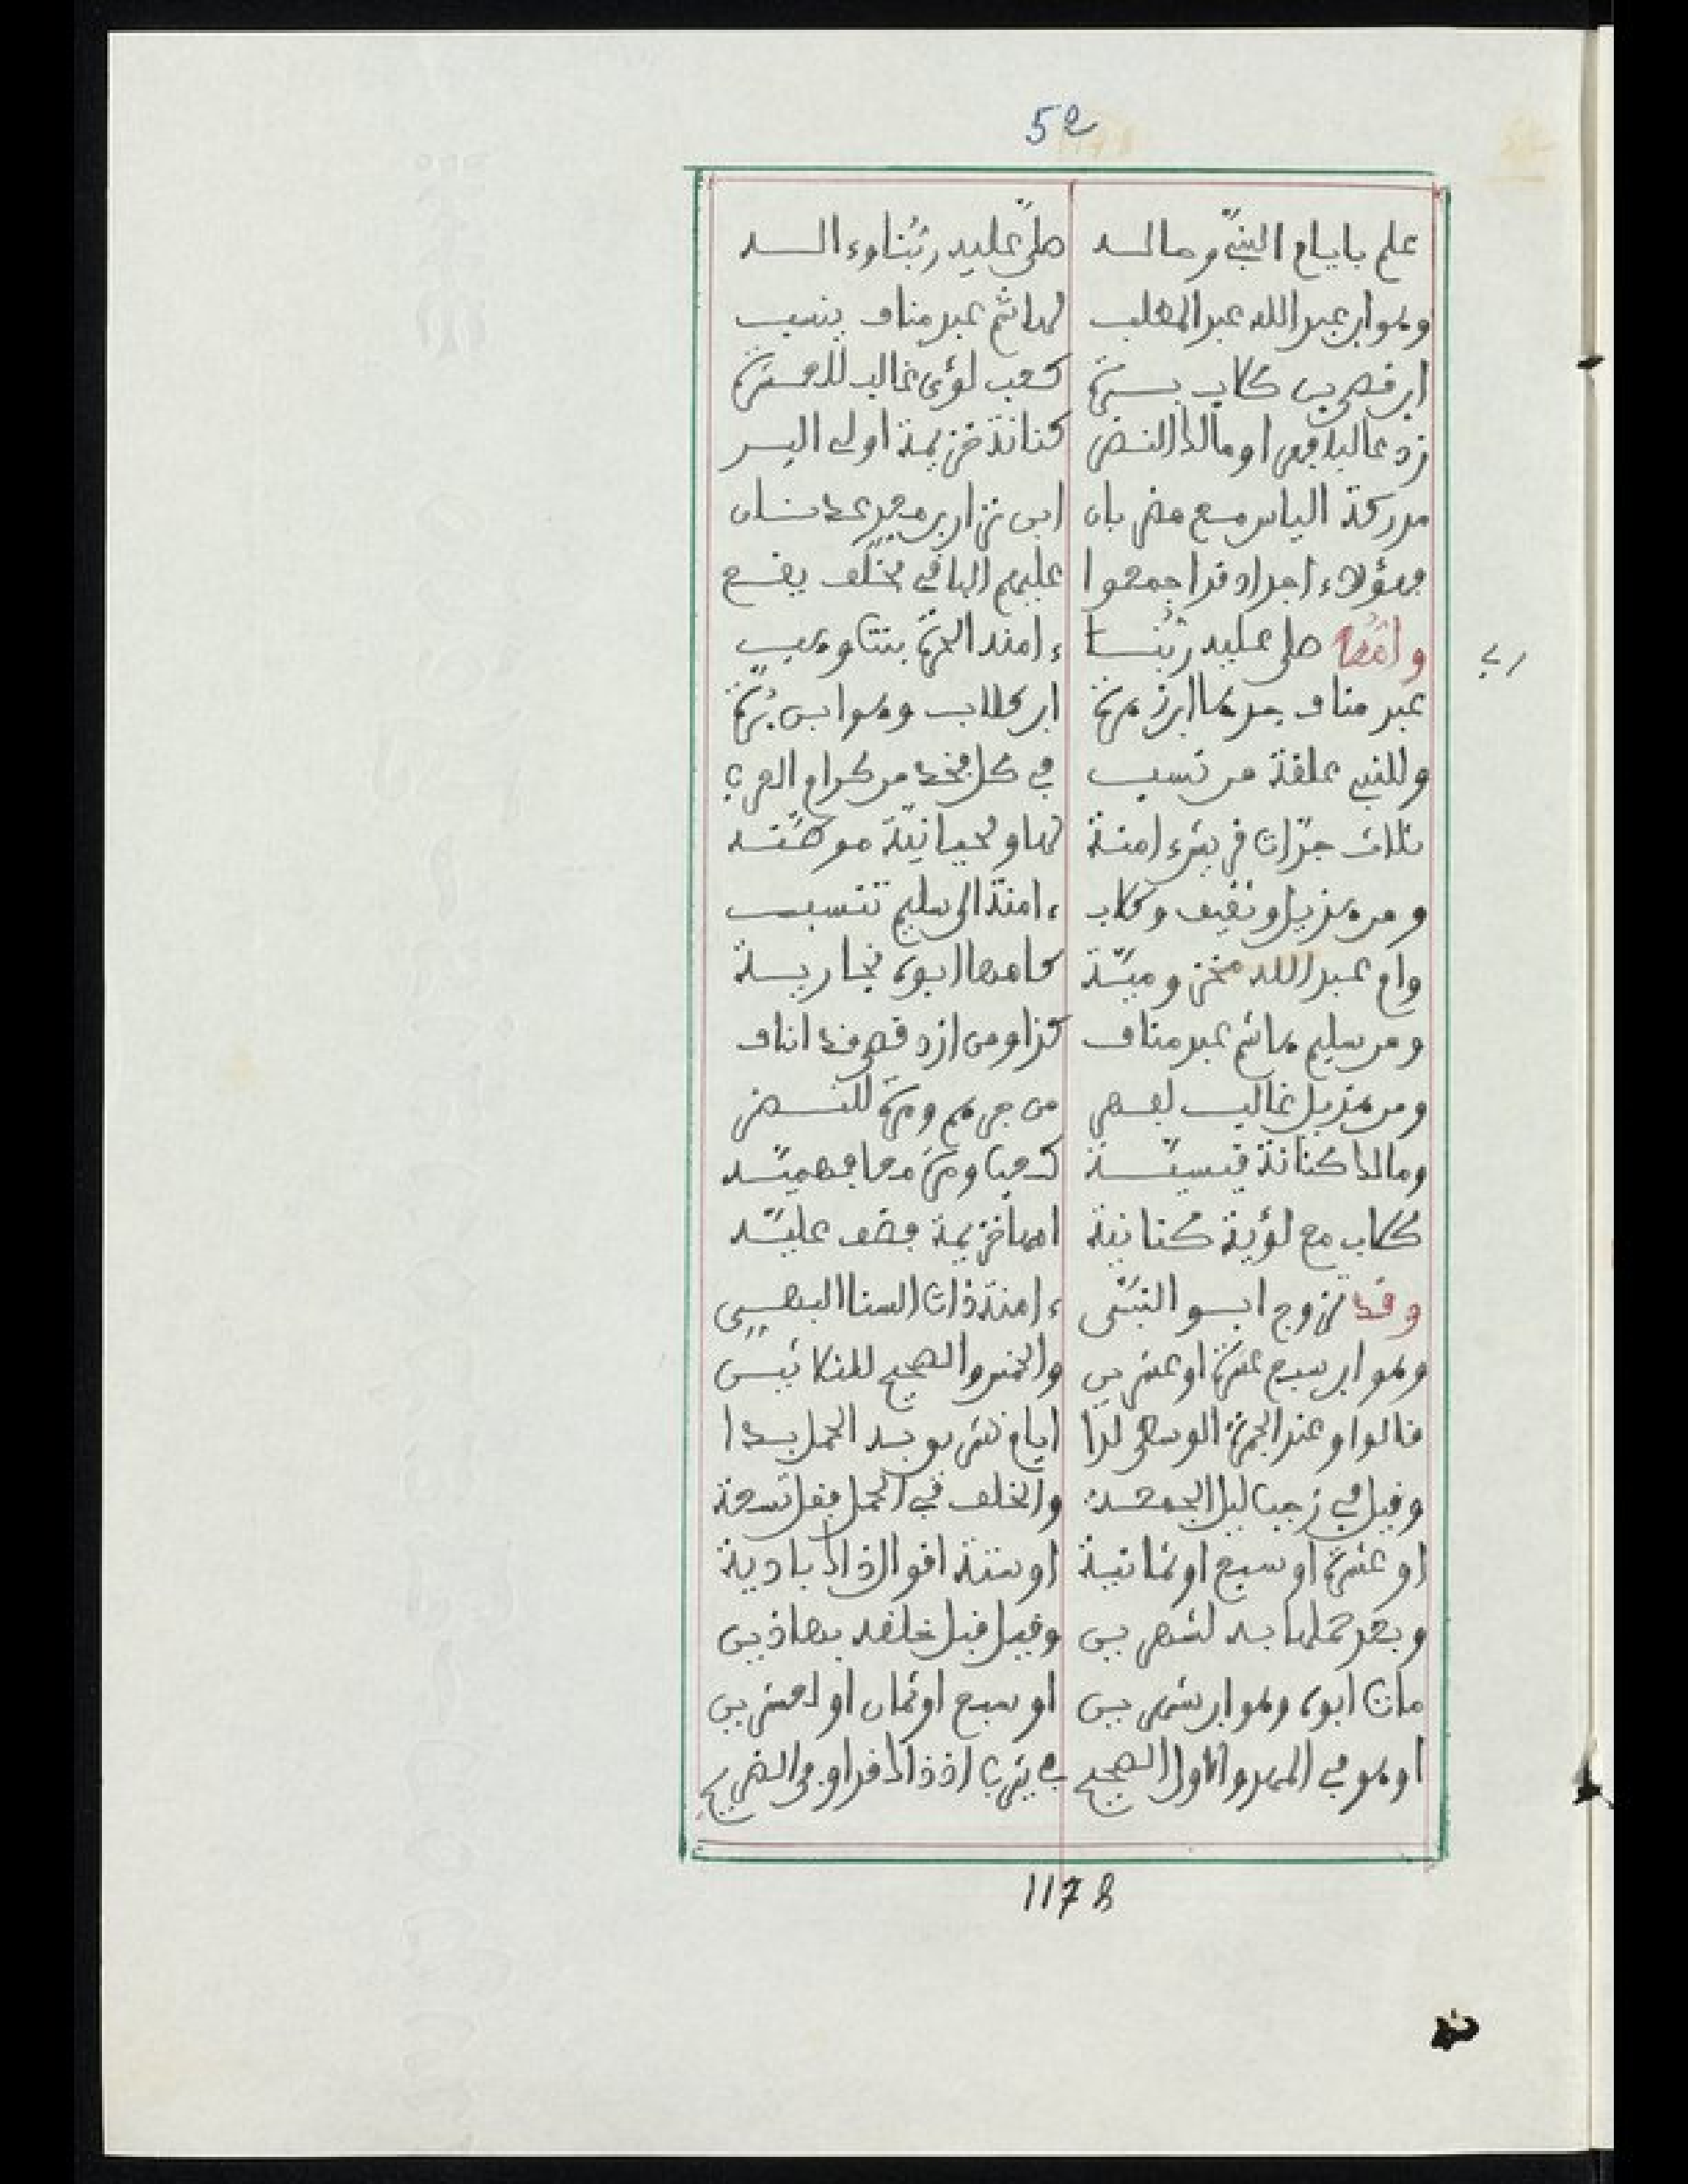 52
علم بايام النبي وماله صلى عليه ربنا وءاله
وهو ابن عبد الله عبد المطلب لهاشم عبد مناف ينسب
ابن قصي بن كلاب بن مرة كعب لؤي غالب
زد غالبا فهرا ومالك النضر كنانة خزيمة اولى اليسر
مدركة الياس مع مضر بان ابن نزار بن معد عدنان
فهؤلاء اجداد قد اجمعوا عليهم الباقي بخلف يقع
وامه صلى عليه ربنا ءامنة الحرة بنت وهب
عبد مناف جدها ابن زهرة ابن كلاب وهو ابن مرة
وللنبي علقة من نسب في كل فخذ من كرام العرب
ثلاث جدات قريش ءامنة لها ولحيانية
ومن هذيل وثقيف وكلاب ءامنة الى سليم تنتسب
وام عبد الله مخزومية كامها ابوه نجارية
ومن سليم هاشم عبد مناف كذا ومن ازد قصي قد اناف
ومن هذيل غالب لفهر من جرهم ومرة للنضر
ومالك كنانة قيسية كعب ومرة معا فهمية
كلاب مع لؤية كنانية اما خزيمة فقف عليه
وقد تزوج ابو النبي ءامنة ذات السنا البهي
وهو ابن سبع عشرة او عشرين والخمس والصحيح للثلاثين
قالوا وعند الجمرة الوسطى لدا ايام تشريق به الحمل بدا
وقيل في رجب ليل الجمعة والخلف في الحمل فقل تسعة
او عشرة او سبع او ثمانية او ستة اقوال ذاك بادية
وبعد حملها به لشهرين وقيل قبل خلفه بهاذين
مات ابوه وهو ابن شهرين او سبع او ثمان او
او هو في المهد والاول الصحيح في يثرب اذ ذاك الضريح
1178